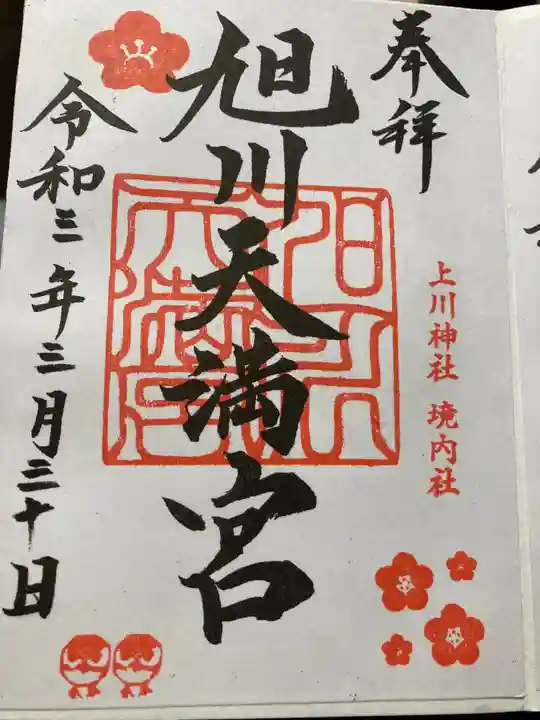 奉拝
上川神社 境内社
旭川天満宮
令和三年三月三十日